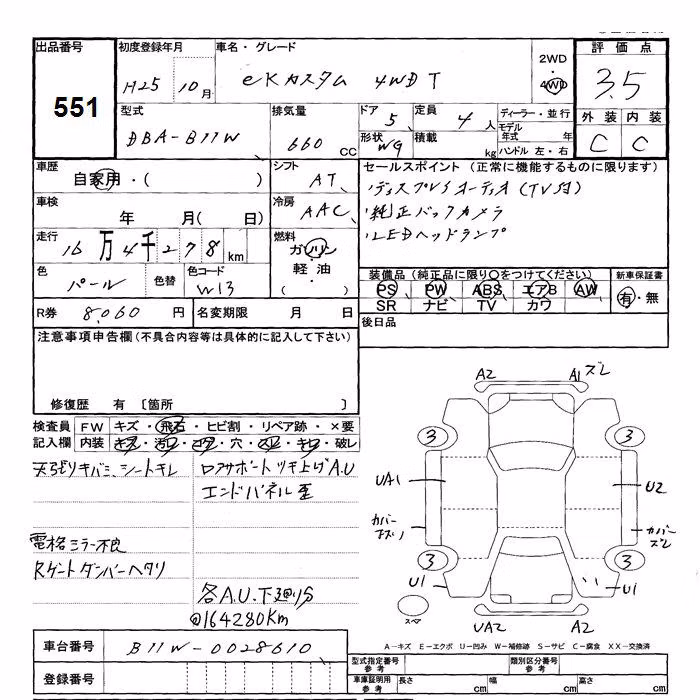 出品番号 初度登録年月 車名・グレード 2WD・4WD 評価点
551 H25 10月 eKカスタム 4WD T 3.5
型式 排気量 ドア 定員 ディーラー・並行 外装 内装
DBA-B11W 660cc 5 4人 モデル年式 年 C C
形状 WG 積載 kg ハンドル 左・右
車歴 シフト セールスポイント (正常に機能するものに限ります)
自家用・( ) AT ・ディスプレイオーディオ(TV付)
車検 冷房 ・純正バックカメラ
年 月( 日) AAC ・LEDヘッドランプ
走行 燃料
16万4千278km ガソリン
軽油
・( )
色 色替 色コード 装備品 (純正品に限り○をつけてください) 新車保証書
パール W13 PS PW ABS エアB AW 有・無
SR ナビ TV カワ
R券 8,060円 名変期限 月 日 後日品
注意事項申告欄 (不具合内容等は具体的に記入して下さい)
修復歴 有 〔箇所 〕
検査員 FW キズ・飛石・ヒビ割・リペア跡・×要
記入欄 内装 キズ・汚レ・コゲ・穴・スレ・キレ・破レ
天張りキバミ、シートキレ
ロアサポートツキ上ゲA.U
エンドパネル歪
電格ミラー不良
Rゲートダンパーヘタリ
各A.U.下廻りS
@164280Km
A2 A1 ズレ
3 3
UA1 U2
カバー キズ
カバー ズレ
3 3
U1 U1
スペ
UA2 A2
車台番号 B11W-0028610
登録番号
A-キズ E-エクボ U-凹み W-補修跡 S-サビ C-腐食 XX-交換済
型式指定番号 参考 類別区分番号 参考
車庫証明用 参考 長さ cm 幅 cm 高さ cm